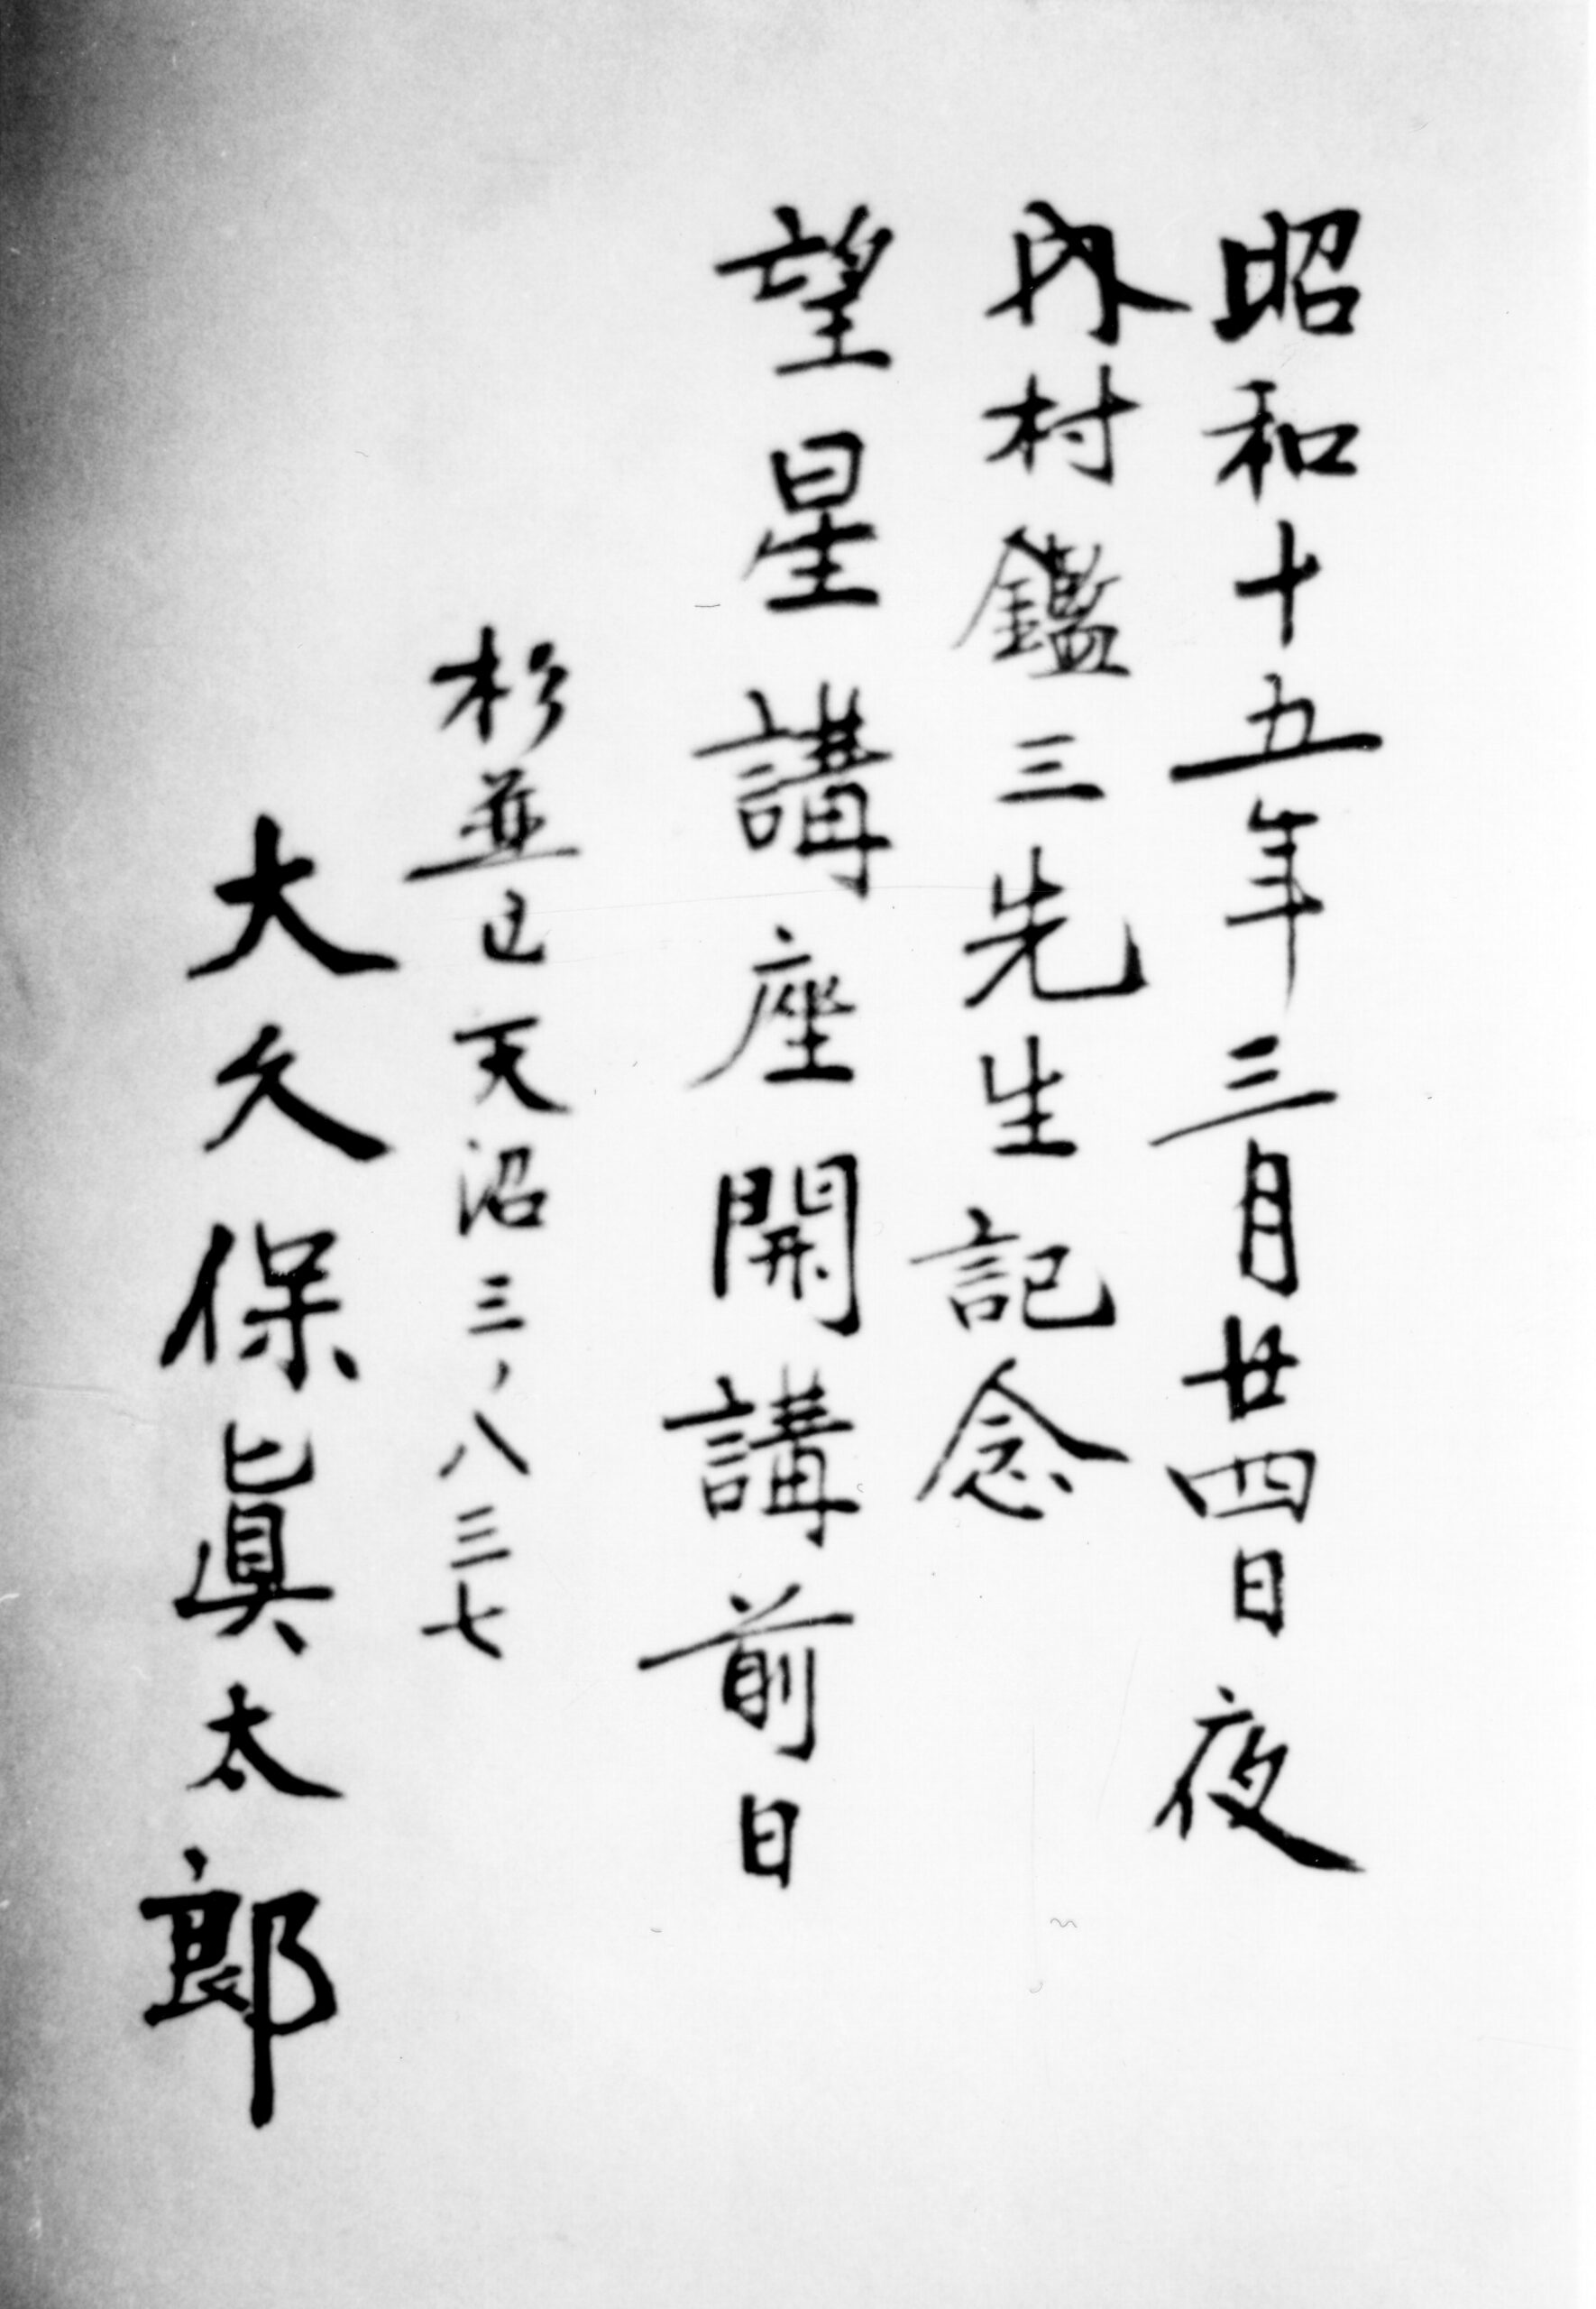 昭和十五年三月廿四日夜
内村鑑三先生記念
望星講座開講前日
杉並区天沼三、八三七
大久保眞太郎